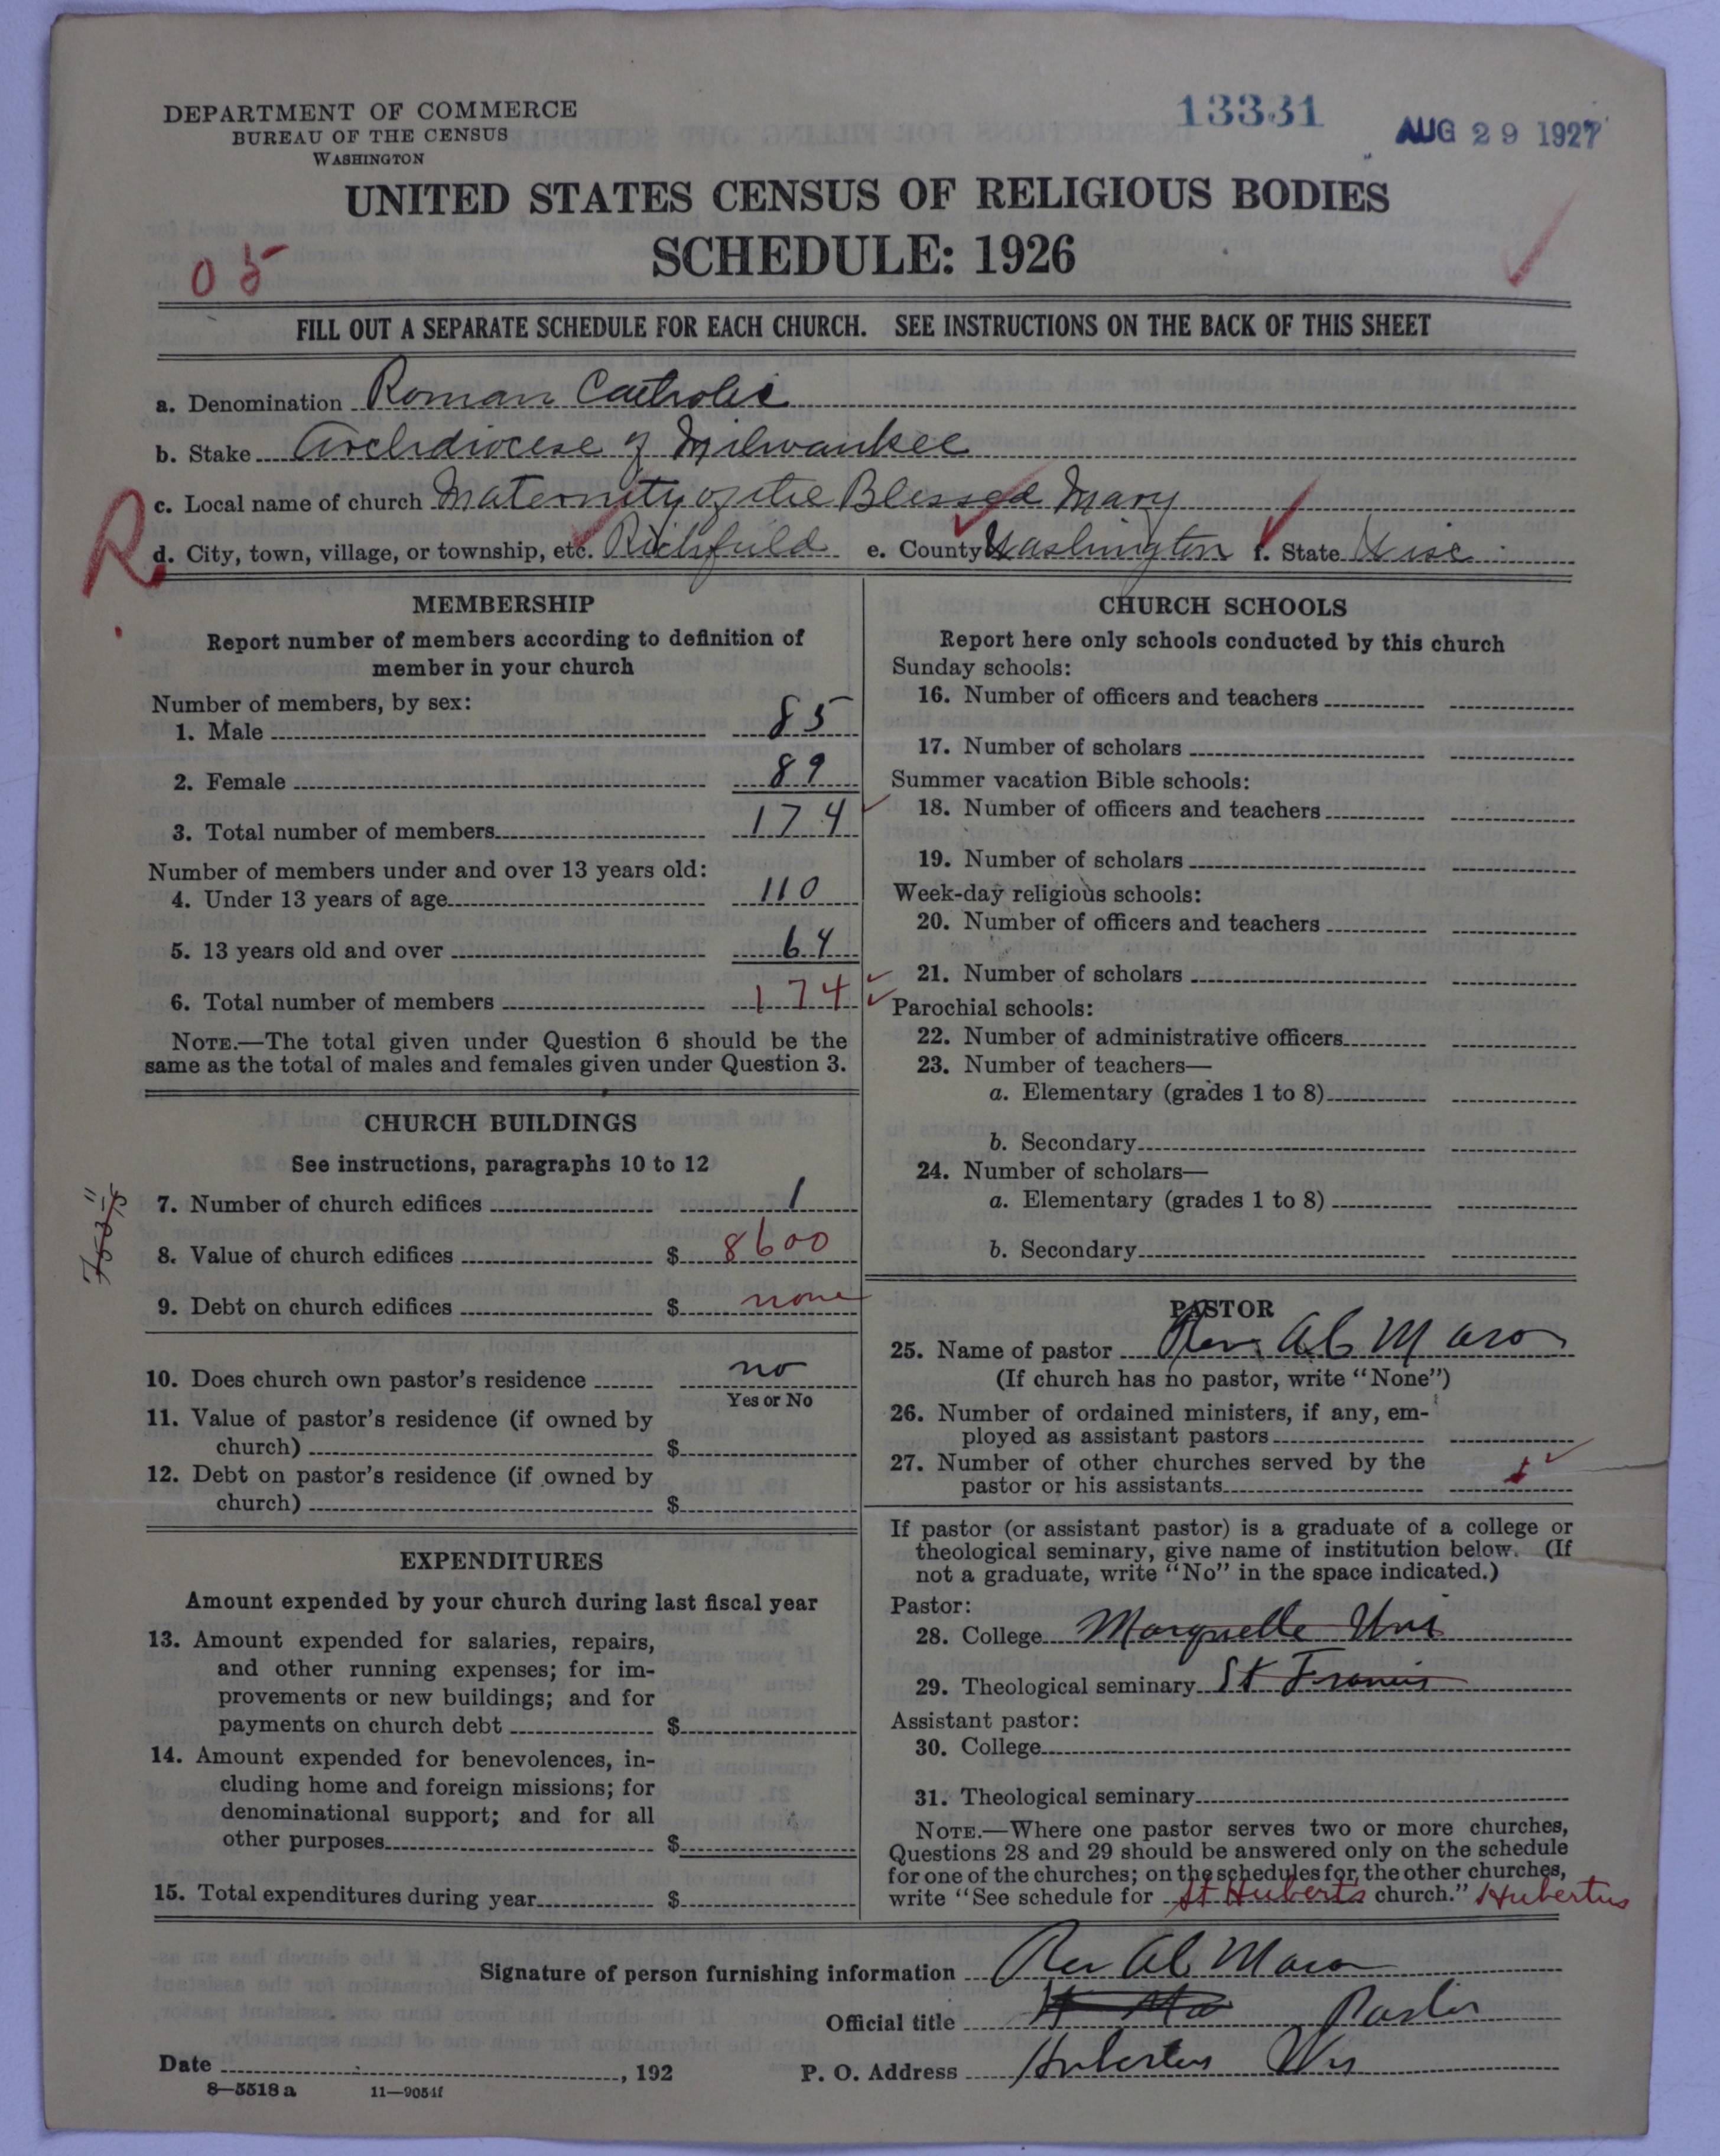 DEPARTMENT OF COMMERCE
BUREAU OF THE CENSUS
WASHINGTON
13331
AUG 29 1927
UNITED STATES CENSUS OF RELIGIOUS BODIES
SCHEDULE: 1926
05
FILL OUT A SEPARATE SCHEDULE FOR EACH CHURCH. SEE INSTRUCTIONS ON THE BACK OF THIS SHEET
a. Denomination Roman Catholic
b. Stake Archdiocese of Milwaukee
c. Local name of church Maternity of the Blessed Mary
R
d. City, town, village, or township, etc. Richfield e. County Washington f. State Wisc
MEMBERSHIP
Report number of members according to definition of
member in your church
Number of members, by sex:
1. Male 85
2. Female 89
3. Total number of members 174
Number of members under and over 13 years old:
4. Under 13 years of age 110
5. 13 years old and over 64
6. Total number of members 174
NOTE.—The total given under Question 6 should be the
same as the total of males and females given under Question 3.
CHURCH BUILDINGS
See instructions, paragraphs 10 to 12
7. Number of church edifices 1
8. Value of church edifices $ 8600
9. Debt on church edifices $ none
10. Does church own pastor's residence no
Yes or No
11. Value of pastor's residence (if owned by
church) $
12. Debt on pastor's residence (if owned by
church) $
EXPENDITURES
Amount expended by your church during last fiscal year
13. Amount expended for salaries, repairs,
and other running expenses; for im-
provements or new buildings; and for
payments on church debt $
14. Amount expended for benevolences, in-
cluding home and foreign missions; for
denominational support; and for all
other purposes $
15. Total expenditures during year $
CHURCH SCHOOLS
Report here only schools conducted by this church
Sunday schools:
16. Number of officers and teachers
17. Number of scholars
Summer vacation Bible schools:
18. Number of officers and teachers
19. Number of scholars
Week-day religious schools:
20. Number of officers and teachers
21. Number of scholars
Parochial schools:
22. Number of administrative officers
23. Number of teachers—
a. Elementary (grades 1 to 8)
b. Secondary
24. Number of scholars—
a. Elementary (grades 1 to 8)
b. Secondary
PASTOR
25. Name of pastor Rev. Al. Maro
(If church has no pastor, write "None")
26. Number of ordained ministers, if any, em-
ployed as assistant pastors
27. Number of other churches served by the
pastor or his assistants 1
If pastor (or assistant pastor) is a graduate of a college or
theological seminary, give name of institution below. (If
not a graduate, write "No" in the space indicated.)
Pastor:
28. College Marquette Uni
29. Theological seminary St Francis
Assistant pastor:
30. College
31. Theological seminary
NOTE.—Where one pastor serves two or more churches,
Questions 28 and 29 should be answered only on the schedule
for one of the churches; on the schedules for the other churches,
write "See schedule for St Hubert's church." Hubertus
Signature of person furnishing information Rev Al. Maro
Official title Pastor
Date , 192 P. O. Address Hubertus Wis
8—5518 a 11—9054f